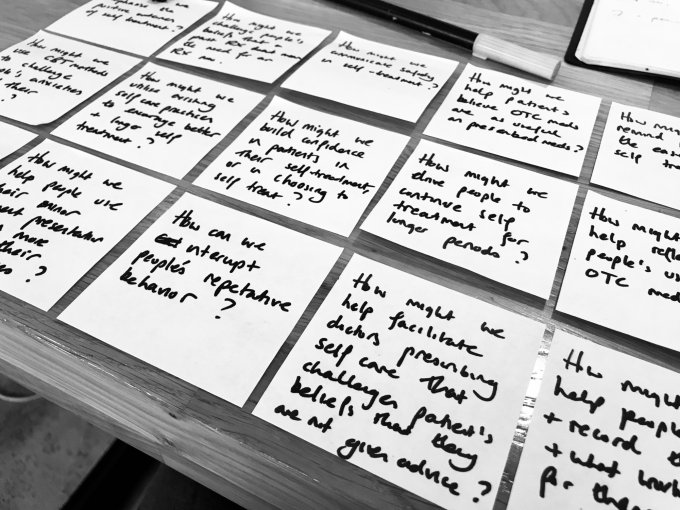 of self treatment?
How might we
challenge people's
beliefs that a
past RX
the need for an
RX now.
How might we
communicate safety
in self-treatment?
How might we
help patients
believe OTC meds
are as useful
as prescribed meds?
How
remind
be
self
How might we
use CBT methods
to challenge
anxieties
their
?
How might we
utilise existing
self care practices
to encourage better
+ longer self
treatment?
How might we
build confidence
in patients in
their self treatment,
or in choosing to
self treat?
How might we
drive people to
continue self
treatment for
longer periods?
How might
help
people's
OTC
How might we
help people use
their minor
presentation
more
their
?
How can we
interrupt
people's repetative
behavior?
How might we
help facilitate
doctors prescribing
self care that
challenges patient's
beliefs that they
are not given advice?
How might
help
+ record
+ what
for